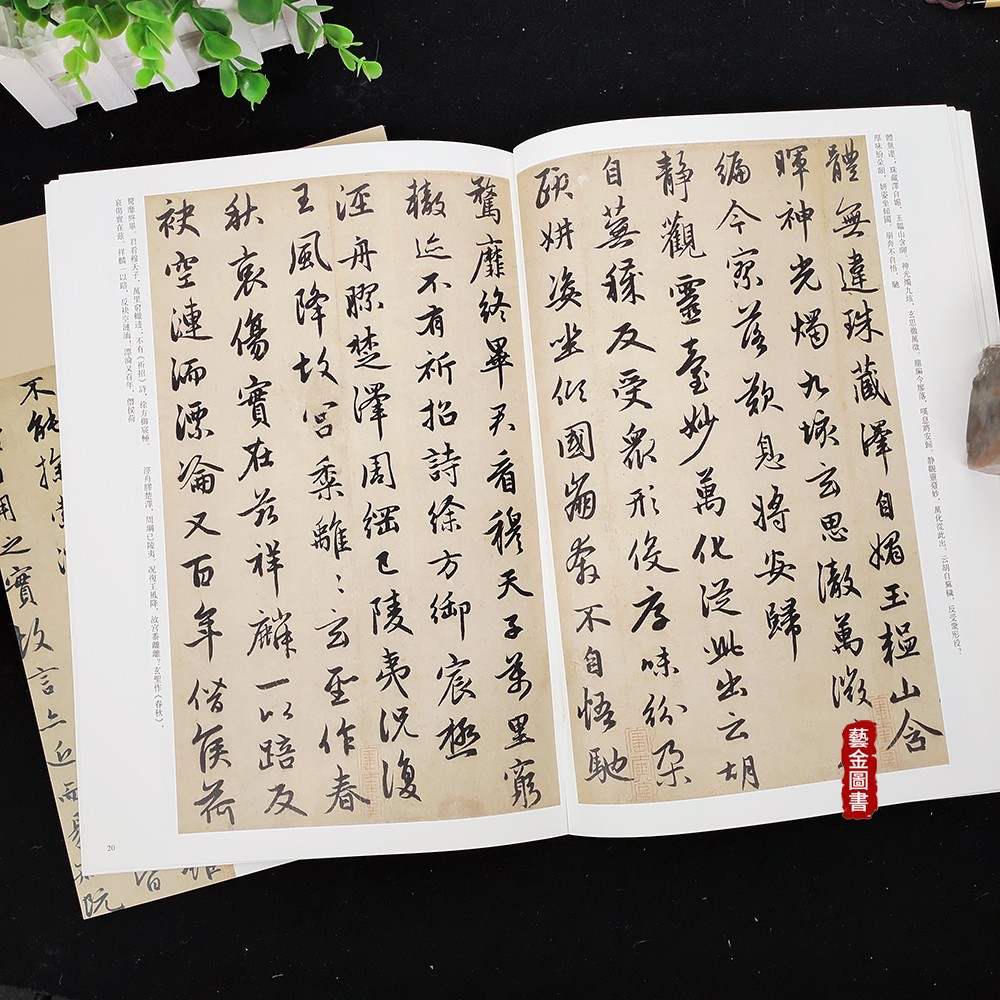 體無違，珠藏澤自媚，玉韞山含暉。神光燭九垓，玄思徹萬微。塵編今寥落，嘆息將安歸。 靜觀靈臺妙，萬化從此出。云胡自蕪穢，反受衆形役？
厚味紛朵頤，妍姿坐傾國。崩奔不自悟，馳
體無違珠藏澤自媚玉韞山含
暉神光燭九垓玄思澈萬微
編今寥落歎息將安歸
靜觀靈臺妙萬化從此出云胡
自蕪穢反受衆形役厚味紛朵
頤妍姿坐傾國崩奔不自悟馳
騖靡終畢君看穆天子萬里窮
轍迹不有祈招詩徐方御宸極
涇舟膠楚澤周綱已陵夷況復
王風降故宮黍離〻玄聖作春
秋哀傷實在茲祥麟一以踣反
袂空漣洏漂淪又百年僭侯荷
騖靡終畢。君看穆天子，萬里窮轍迹。不有《祈招》詩，徐方御宸極。 涇舟膠楚澤，周綱已陵夷。况復王風降，故宮黍離離？玄聖作《春秋》，
哀傷實在兹。祥麟一以踣，反袂空漣洏。漂淪又百年，僭侯荷
20
藝金圖書
不能
用之實故言亦近而